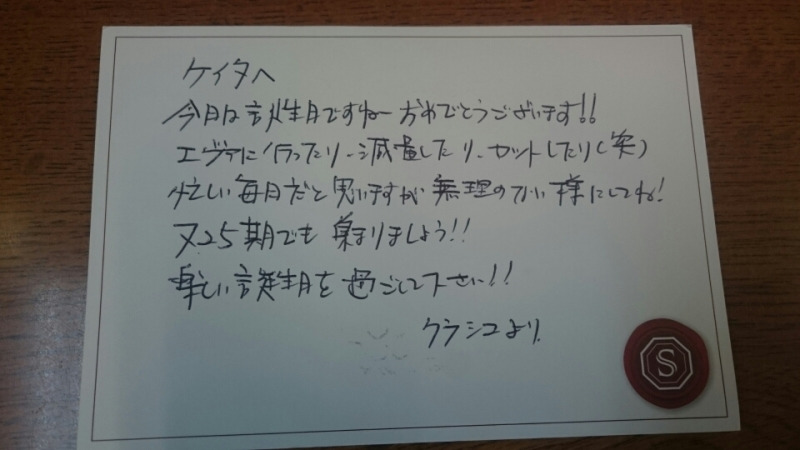 ケイタへ
今日は誕生日ですねーおめでとうございます!!
エヴァに行ったり、減量したり、カットしたり(笑)
忙しい毎日だと思いますが無理のない様にしてね!
又25期でも集まりましょう!!
楽しい誕生日を過ごして下さい!!
クラシコより
S